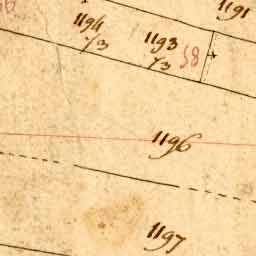 1191
1194
/3
1193
/3
58
1196
1197